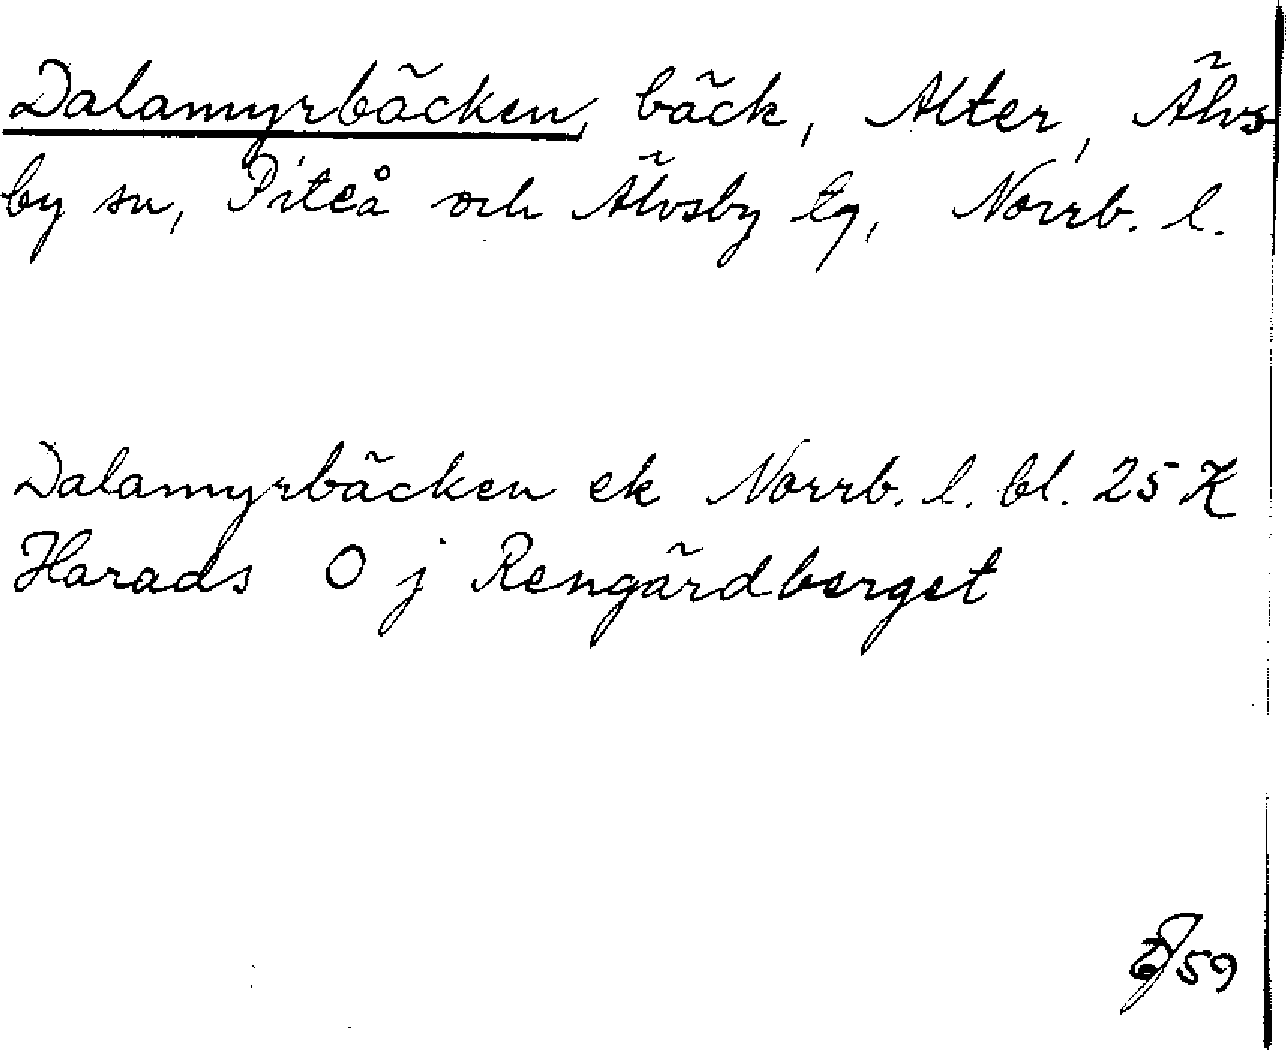 Dalamyrbäcken, bäck, Alter, Älvs
by sn, Piteå och Älvsby tg, Norrb. l.
Dalamyrbäcken ek Norrb. l. bl. 25 K
Harads O j Rengärdberget
59